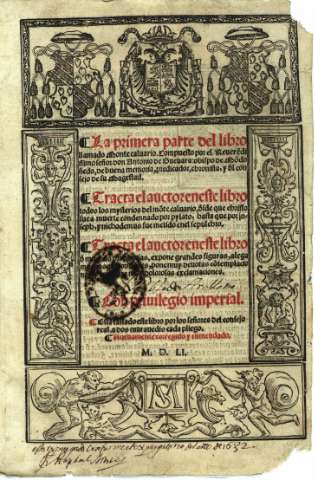 La primera parte del libro
llamado Monte caluario. Compuesto por el Reuerẽdi
simo señor don Antonio de Gueuara obispo de Mõdo
ñedo, de buena memoria, predicador, chronista, y del con
sejo de su Magestad.
Tracta el auctor en este libro
todos los mysterios del mõte caluario, desde que christo
fue a muerte condennado por pylato, hasta que por jo
seph, y nichodemus fue metido en el sepulchro.
Tracta el auctor en este libro
expone grandes figuras, alega
deuotas cõtemplaciones
exclamaciones.
Con priuilegio imperial.
Esta tassado este libro por los señores del consejo
real a dos marauedis cada pliego.
Nueuamente corregido y emendado.
M. D. LI.
MS
de 1632